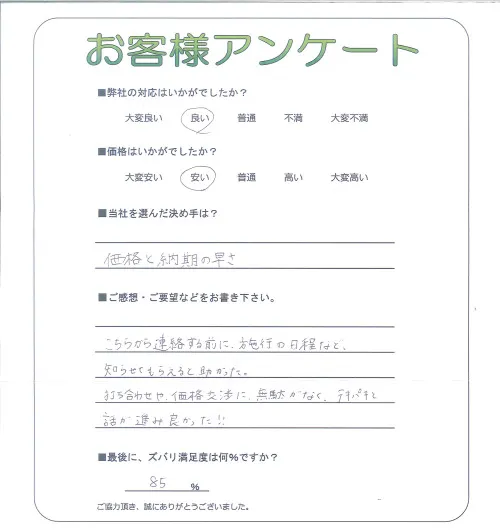 お客様アンケート
■弊社の対応はいかがでしたか？
大変良い 良い 普通 不満 大変不満
■価格はいかがでしたか？
大変安い 安い 普通 高い 大変高い
■当社を選んだ決め手は？
価格と納期の早さ
■ご感想・ご要望などをお書き下さい。
こちらから連絡する前に、施行の日程など、
知らせてもらえると助かった。
打ち合わせや、価格交渉に、無駄がなく、テキパキと
話が進み良かった!!
■最後に、ズバリ満足度は何%ですか？
85 %
ご協力頂き、誠にありがとうございました。